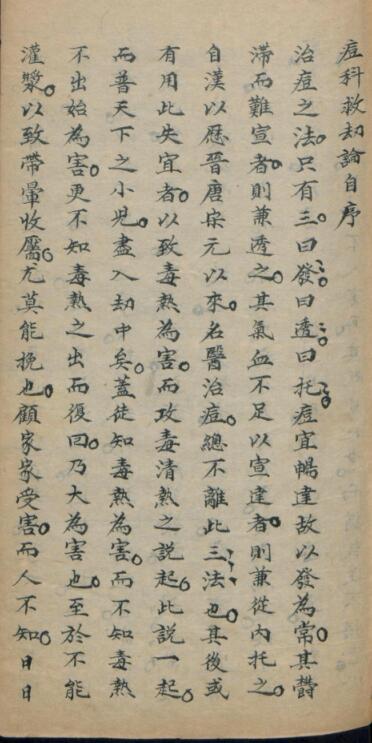 痘科救劫論自序
治痘之法只有三曰發曰透曰托痘宜暢達故以發為常其鬱
滯而難宣者則兼透之其氣血不足以宣達者則兼從內托之
自漢以歷晉唐宋元以來名醫治痘總不離此三法也其後或
有用此失宜者以致毒熱為害而攻毒清熱之説起此説一起
而普天下之小児盡入劫中矣蓋徒知毒熱為害而不知毒熱
不出始為害更不知毒熱之出而復回乃大為害也至於不能
灌漿以致帶暈收靨尤莫能挽也顧家家受害而人不知日日